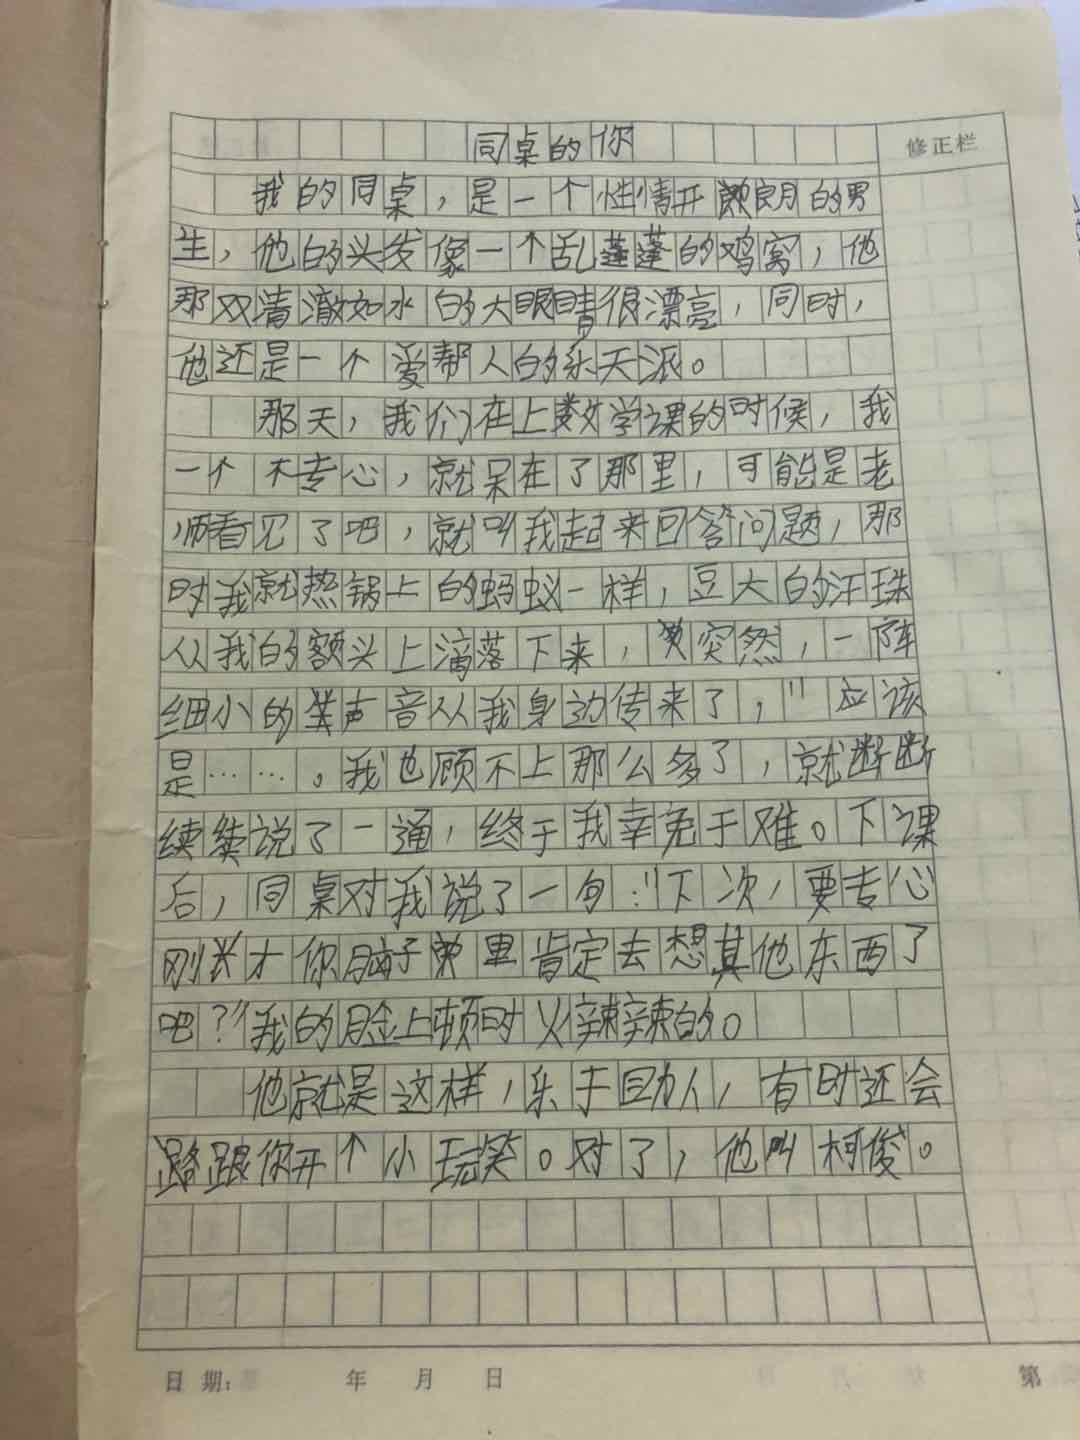 同桌的你
修正栏
我的同桌，是一个性情开朗的男
生，他的头发像一个乱蓬蓬的鸡窝，他
那双清澈如水的大眼睛很漂亮，同时，
他还是一个爱帮人的乐天派。
那天，我们在上数学课的时候，我
一个不专心，就呆在了那里，可能是老
师看见了吧，就叫我起来回答问题，那
时我就热锅上的蚂蚁一样，豆大的汗珠
从我的额头上滴落下来，突然，一阵
细小的声音从我身边传来了，"应该
是……。我也顾不上那么多了，就断断
续续说了一通，终于我幸免于难。下课
后，同桌对我说了一句："下次，要专心
刚才你脑子里肯定去想其他东西了
吧？"我的脸上顿时火辣辣的。
他就是这样，乐于助人，有时还会
跟你开个小玩笑。对了，他叫柯俊。
日期： 年 月 日 第